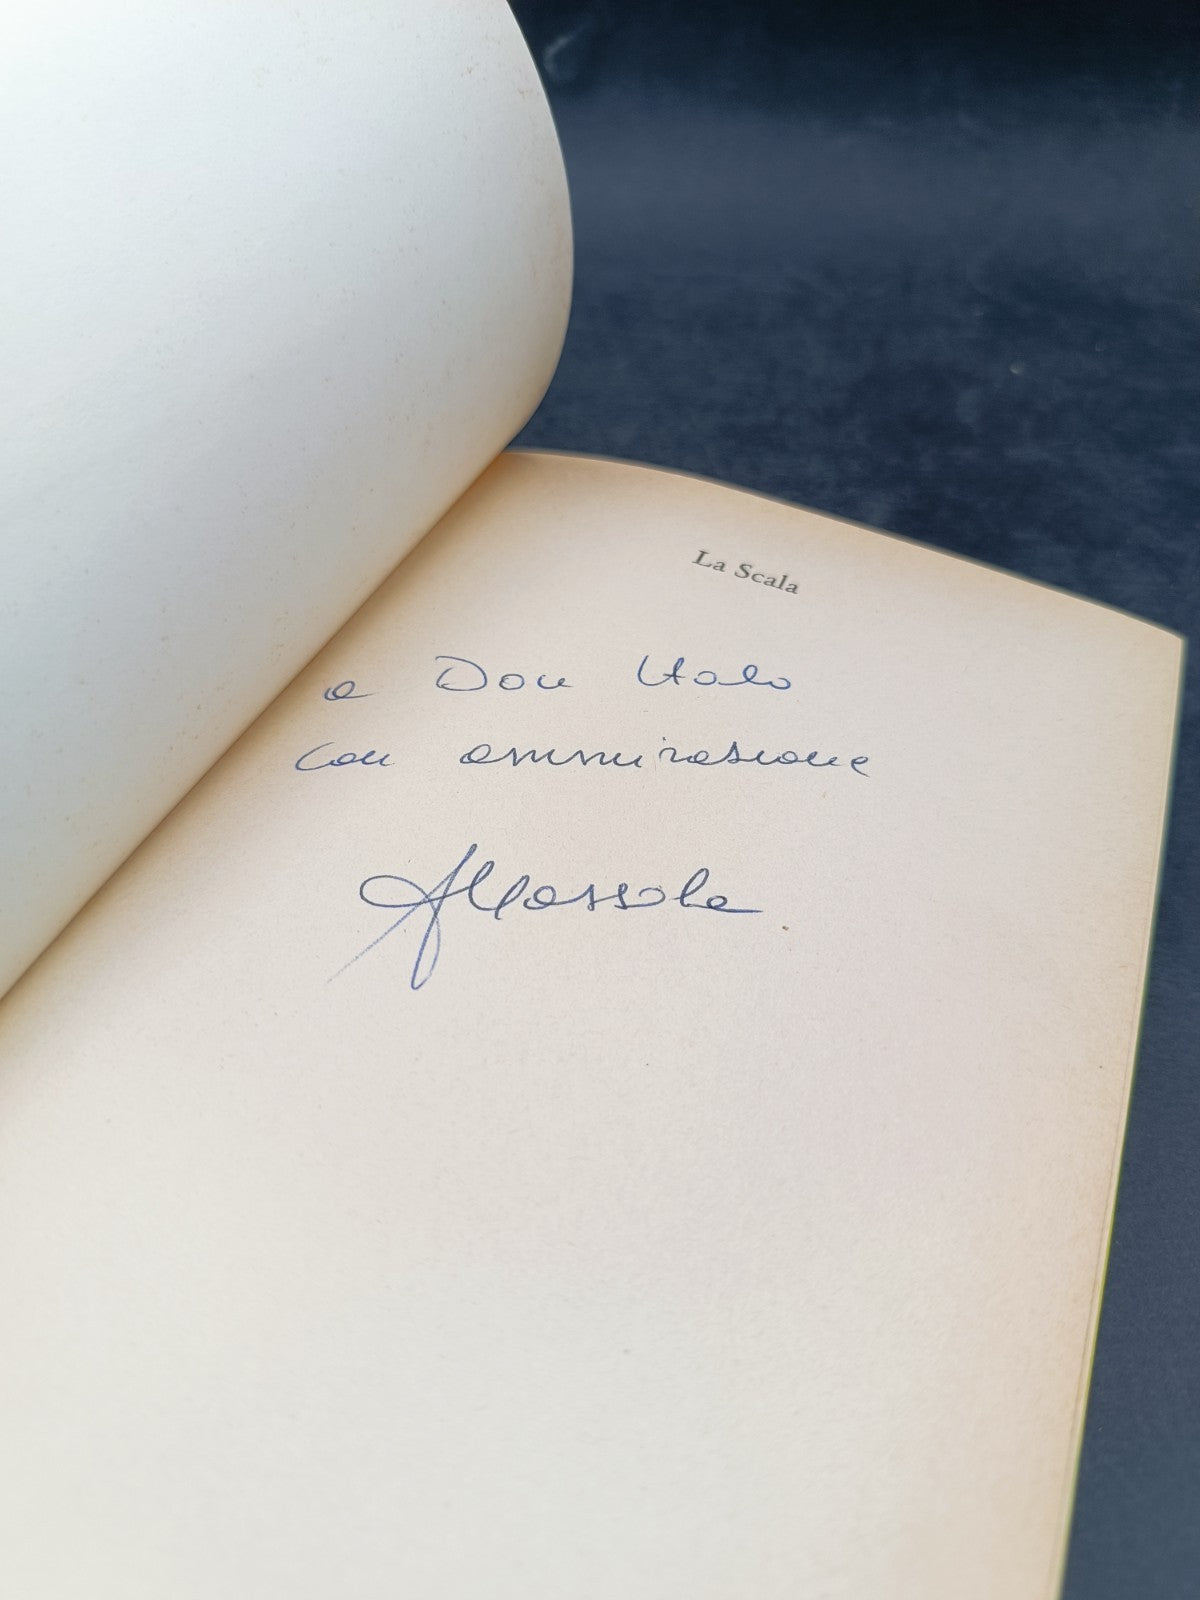 La Scala
a Don Italo
con ammirazione